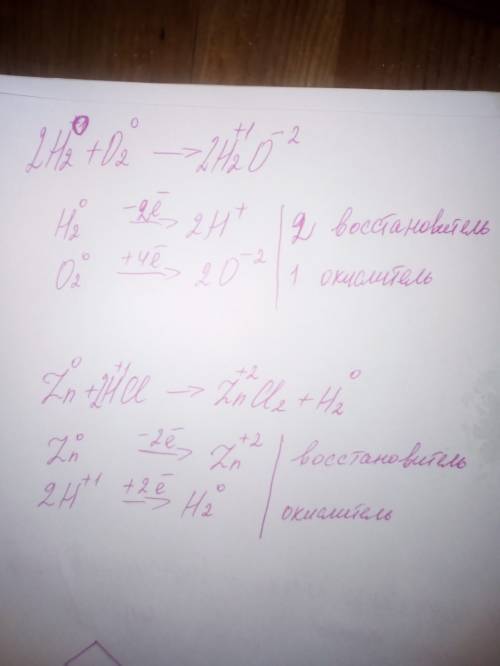 2H₂⁰ + O₂⁰ → 2H₂⁺¹O⁻²
H₂⁰ −2ē → 2H⁺ | 2 восстановитель
O₂⁰ +4ē → 2O⁻² | 1 окислитель
Zn⁰ + 2H⁺¹Cl → Zn⁺²Cl₂ + H₂⁰
Zn⁰ −2ē → Zn⁺² | восстановитель
2H⁺¹ +2ē → H₂⁰ | окислитель